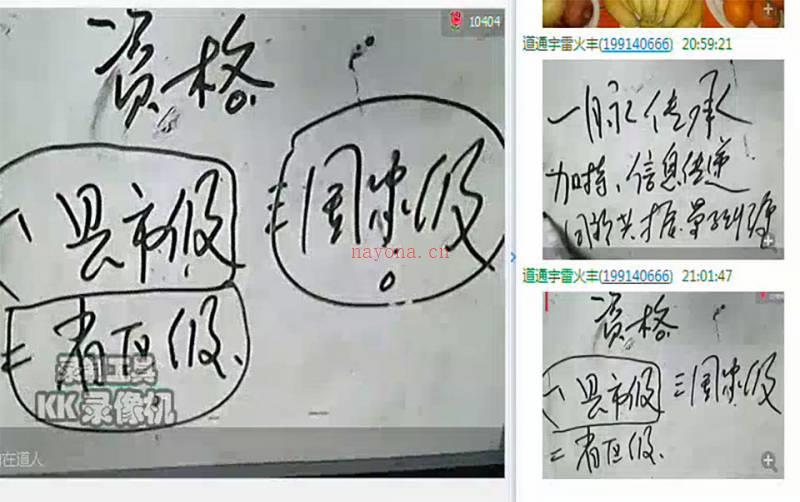 10404
資格
一、县市级
三国家级
二省区级、
nayona.cn
录制工具
KK 录像机
在道人
道通宇雷火丰(199140666) 20:59:21
一脉传承
加持、信息传递
同频共振、量子纠缠
道通宇雷火丰(199140666) 21:01:47
資格
一县市级
三国家级
二省区级、